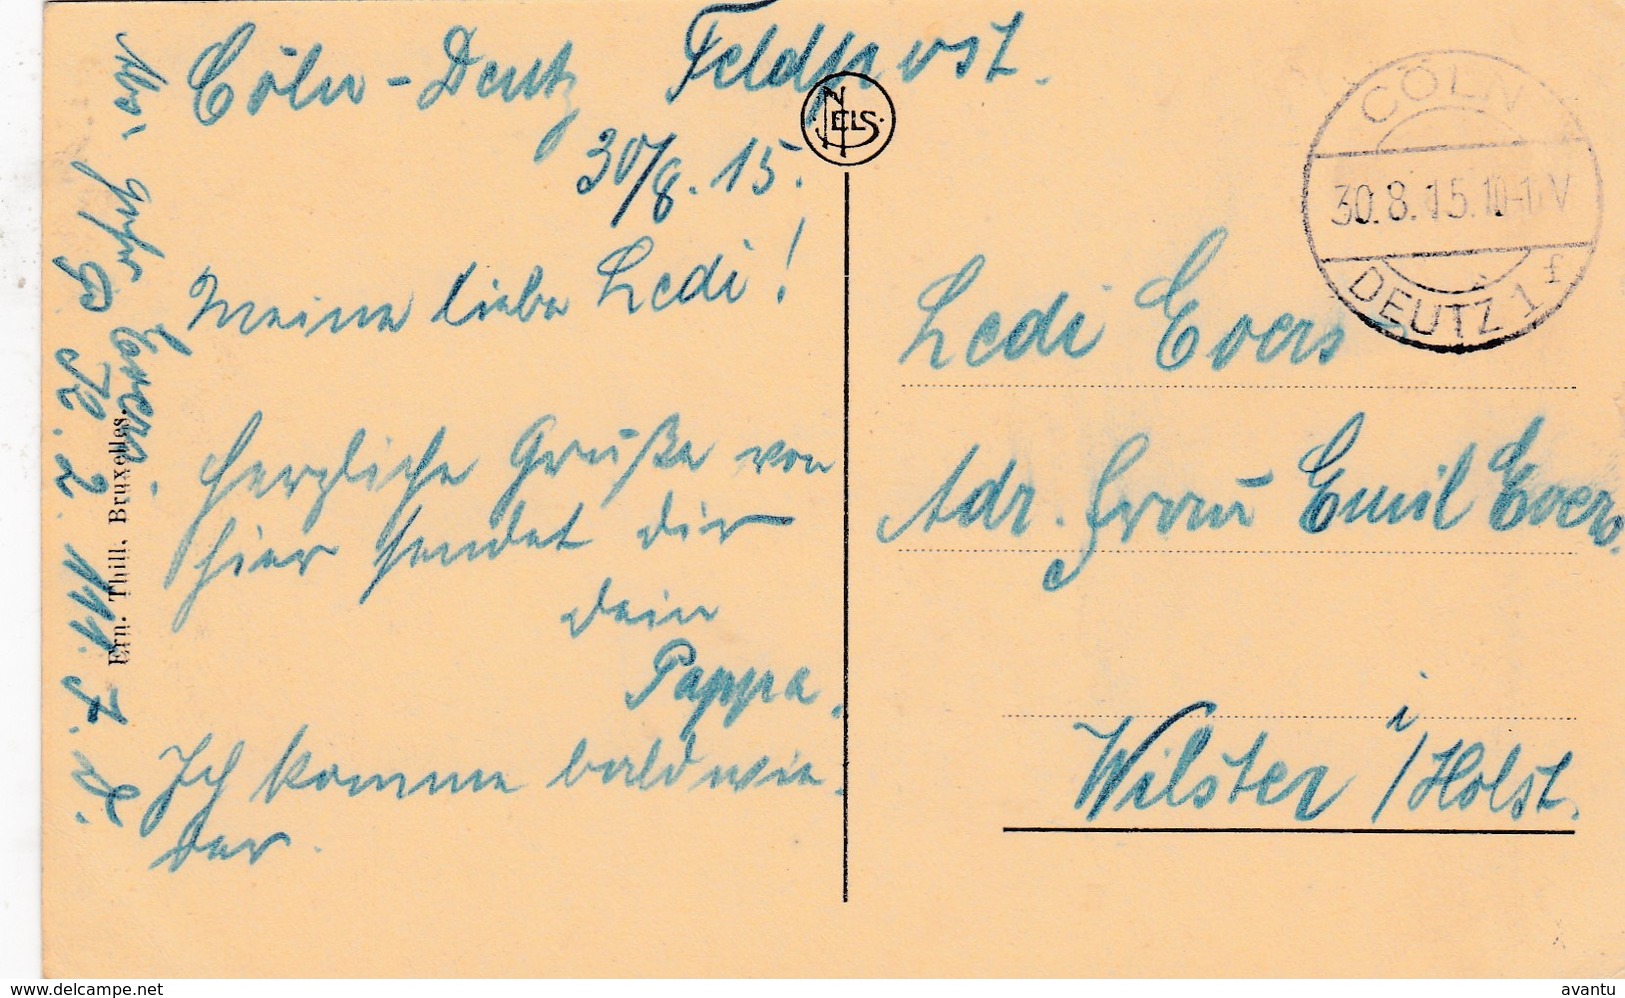 Cöln-Deutz Feldpost.
30/8.15.
Meine liebe Ledi!
Herzliche Grüße von
hier sendet dir
dein
Pappa.
Ich komme bald wie
der.
Evers.
Ern. Thill, Bruxelles.
NELS
CÖLN
30.8.15.10-11V
DEUTZ 1 f
Ledi Evers
Adr. Frau Emil Evers.
Wilster i/Holst.
www.delcampe.net
avantu